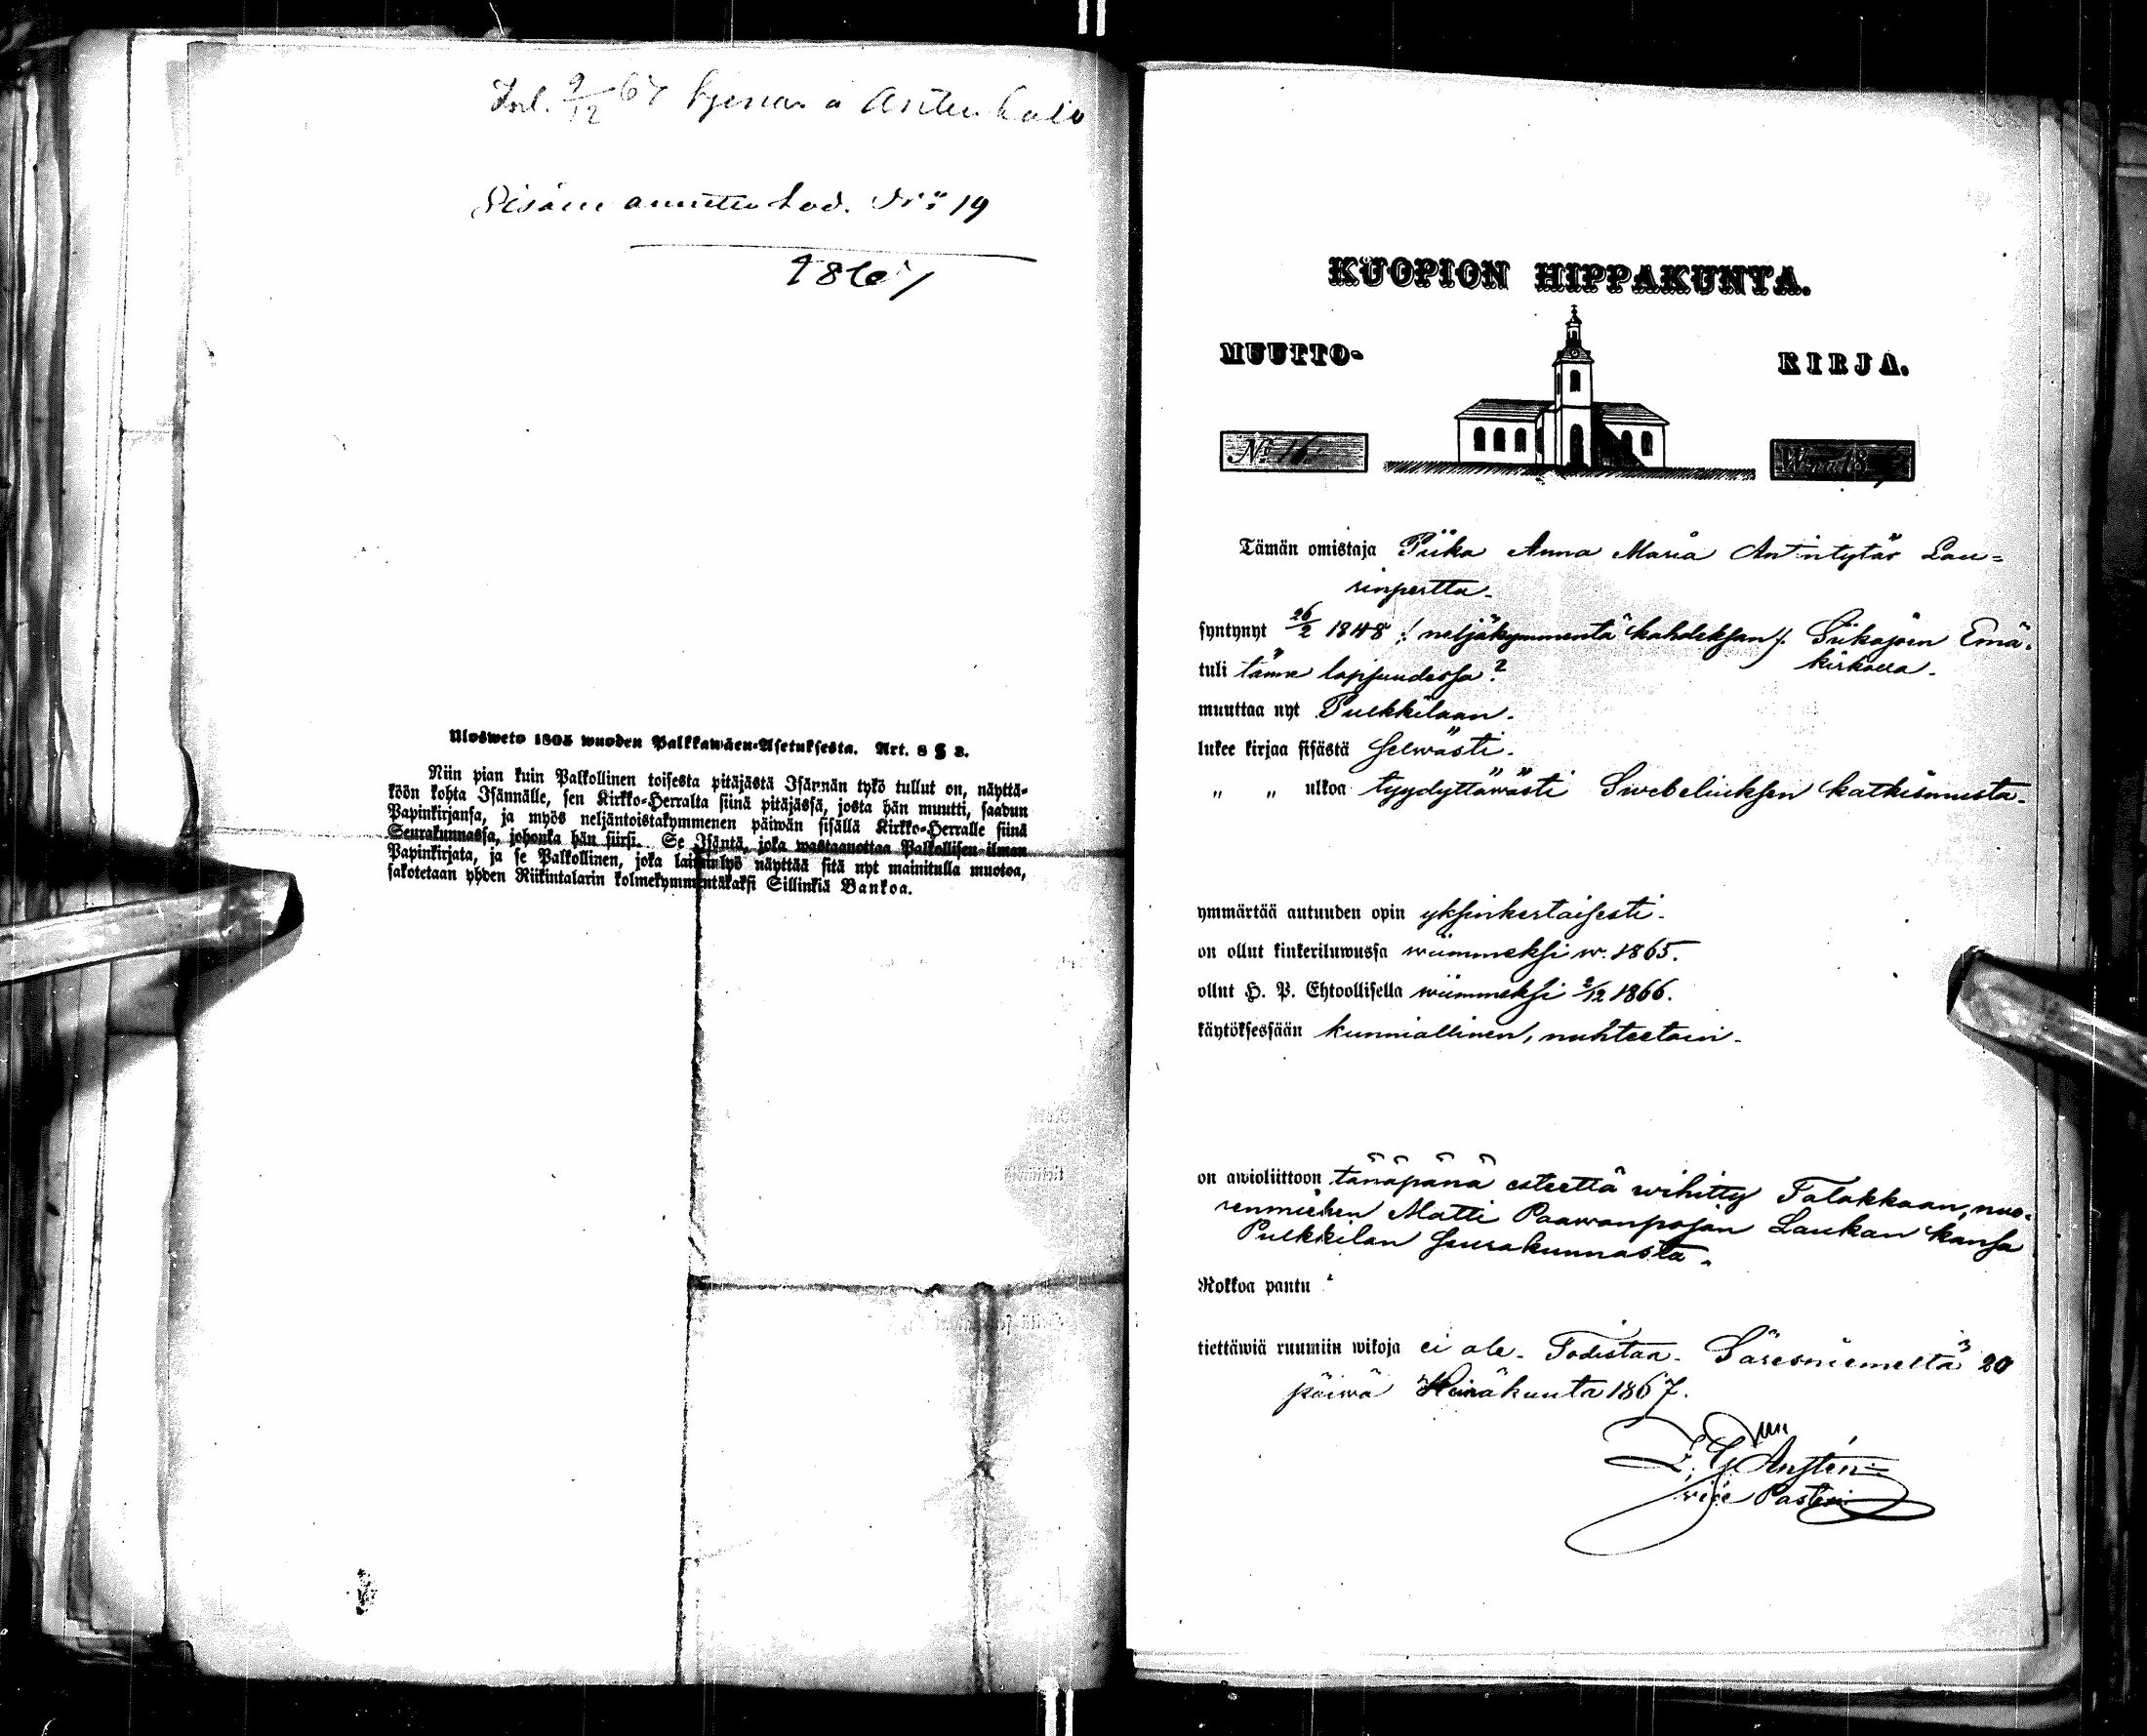 Inl. 9/12 67
Sisään annettu tod. N:o 19
1867
Ulosweto 1805 wuoden Palkkawäen-Asetuksesta. Art. 8 § 3.
Niin pian kuin Palkollinen toisesta pitäjästä Isännän tykö tullut on, näyttä-
köön kohta Isännälle, sen Kirkko-Herralta siinä pitäjässä, josta hän muutti, saadun
Papinkirjansa, ja myös neljäntoistakymmenen päiwän sisällä Kirkko-Herralle siinä
Seurakunnassa, johonka hän siirsi. Se Isäntä, joka wastaanottaa Palkollisen ilman
Papinkirjata, ja se Palkollinen, joka laiminlyö näyttää sitä nyt mainitulla muotoa,
sakotetaan yhden Riikintalarin kolmekymmentäkaksi Sillinkiä Bankoa.
KUOPION HIPPAKUNTA.
MUUTTO- KIRJA.
No 16. W:na 18
Tämän omistaja Piika Anna Maria Antintytär Lau=
rinpertta.
syntynyt 26/2 1848 /: neljäkymmentä kahdeksan /. Siikajoen Emä-
kirkolla.
tuli tänne lapsuudessa?
muuttaa nyt Pulkkilaan.
lukee kirjaa sisästä selwästi.
" " ulkoa tyydyttäwästi Swebeliuksen katkismusta.
ymmärtää autuuden opin yksinkertaisesti.
on ollut kinkeriluwussa wiimmeksi w. 1865.
ollut H. P. Ehtoollisella wiimmeksi 2/12 1866.
käytöksessään kunniallinen, nuhteetoin.
on awioliittoon tänäpänä esteettä wihitty Talakkaan, nuo-
renmiehen Matti Paawonpojan Laukan kansa
Pulkkilan seurakunnasta.
Rokkoa pantu
tiettäwiä ruumiin wikoja ei ole. Todistaa. Säresniemeltä 20
päiwä Heinäkuuta 1867.
wice Pastori